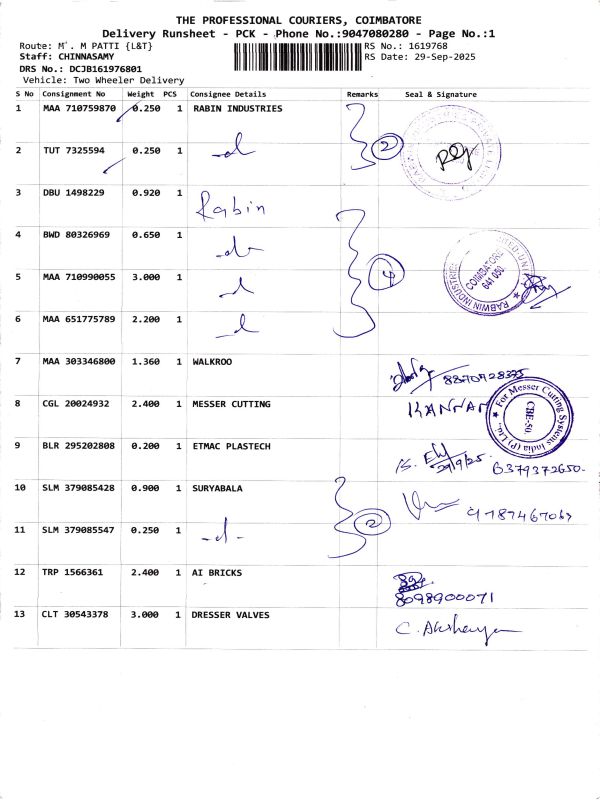 THE PROFESSIONAL COURIERS, COIMBATORE
Delivery Runsheet - PCK - Phone No.:9047080280 - Page No.:1
Route: M . M PATTI {L&T} RS No.: 1619768
Staff: CHINNASAMY RS Date: 29-Sep-2025
DRS No.: DCJB161976801
Vehicle: Two Wheeler Delivery
S No Consignment No Weight PCS Consignee Details Remarks Seal & Signature
1 MAA 710759870 0.250 1 RABIN INDUSTRIES
2 TUT 7325594 0.250 1 -d 2
3 DBU 1498229 0.920 1 Rabin
4 BWD 80326969 0.650 1 -d-
COIMBATORE
641 050.
RABWIN INDUSTRIES
5 MAA 710990055 3.000 1 -d 4
6 MAA 651775789 2.200 1 -d
7 MAA 303346800 1.360 1 WALKROO 8870728375
8 CGL 20024932 2.400 1 MESSER CUTTING KANNAN
For Messer Cutting Systems India (P) Ltd.,
CBE-50.
9 BLR 295202808 0.200 1 ETMAC PLASTECH 29/9/25. 6379372650-
10 SLM 379085428 0.900 1 SURYABALA
11 SLM 379085547 0.250 1 -d- 2
12 TRP 1566361 2.400 1 AI BRICKS
8098900071
13 CLT 30543378 3.000 1 DRESSER VALVES C. Akshaya